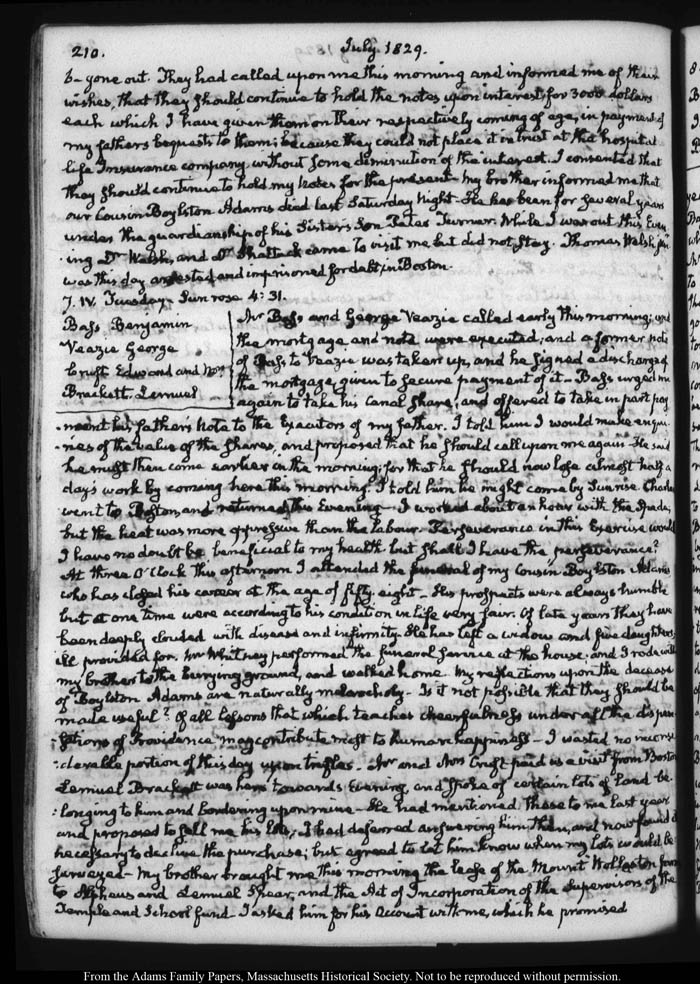 210. July 1829.
6- gone out. They had called upon me this morning and informed me of their
wishes, that they should continue to hold the notes upon interest, for 3000 dollars
each which I have given them on their respectively coming of age, in payment of
my father's bequests to them; because they could not place it in trust at the hospital
life Insurance company without some diminution of the interest. I consented that
they should continue to hold my Notes for the present - My brother informed me that
our Cousin Boylston Adams died last Saturday Night. He has been for several years
under the guardianship of his Sister's Son Turner. While I was out this Even
:ing Dr Welsh, and Dr Shattuck came to visit me but did not stay. Thomas Welsh junr
was this day arrested and imprisoned for debt, in Boston.
7. IV. Tuesday. Sun rose 4:31.
Bass Benjamin
Veazie George
Cruft Edward and Mrs
Brackett Lemuel
Mr Bass and George Veazie called early this morning; and
the mortgage and note were executed; and a former note
of Bass to Veazie was taken up, and he signed a discharge of
the mortgage, given to secure payment of it - Bass urged me
again to take his Canal Shares, and offered to take in part pay
:ment his father's Note to the Executors of my father. I told him I would make enqui
:ries of the value of the Shares, and proposed that he should call upon me again - He said
he must then come earlier in the morning; for that he should now lose almost half a
day's work by coming here this morning. I told him he might come by Sunrise. Charles
went to Boston, and returned this Evening - I worked about an hour with the Spade,
but the heat was more oppressive than the labour. Perseverance in this Exercise would
I have no doubt be beneficial to my health - but shall I have the perseverance?
At three O'Clock this afternoon I attended the funeral of my Cousin Boylston Adams
who has closed his career at the age of fifty-eight - His prospects were always humble
but at one time were according to his condition in life very fair. Of late years they have
been deeply clouded with disease and infirmity. He has left a widow and five daughters,
ill provided for. Mr Whitney performed the funeral service at the house; and I rode with
my brother to the burying ground, and walked home. My reflections upon the decease
of Boylston Adams are naturally melancholy - Is it not possible that they should be
made useful? Of all lessons that which teaches cheerfulness under all the dispen
:sations of Providence may contribute most to human happiness - I wasted no inconsi
:derable portion of this day upon trifles. Mr and Mrs Cruft paid us a visit from Boston
Lemuel Brackett was here towards Evening, and spoke of certain lots of land be
:longing to him and bordering upon mine - He had mentioned these to me last year
and proposed to sell me his lots; I had deferred answering him then, and now found it
necessary to decline the purchase; but agreed to let him know when my lots would be
surveyed - My brother brought me this morning the lease of the Mount Wollaston farm
to Alpheus and Lemuel Spear, and the Act of Incorporation of the Supervisors of the
Temple and School fund - I asked him for his Account with me, which he promised
From the Adams Family Papers, Massachusetts Historical Society. Not to be reproduced without permission.